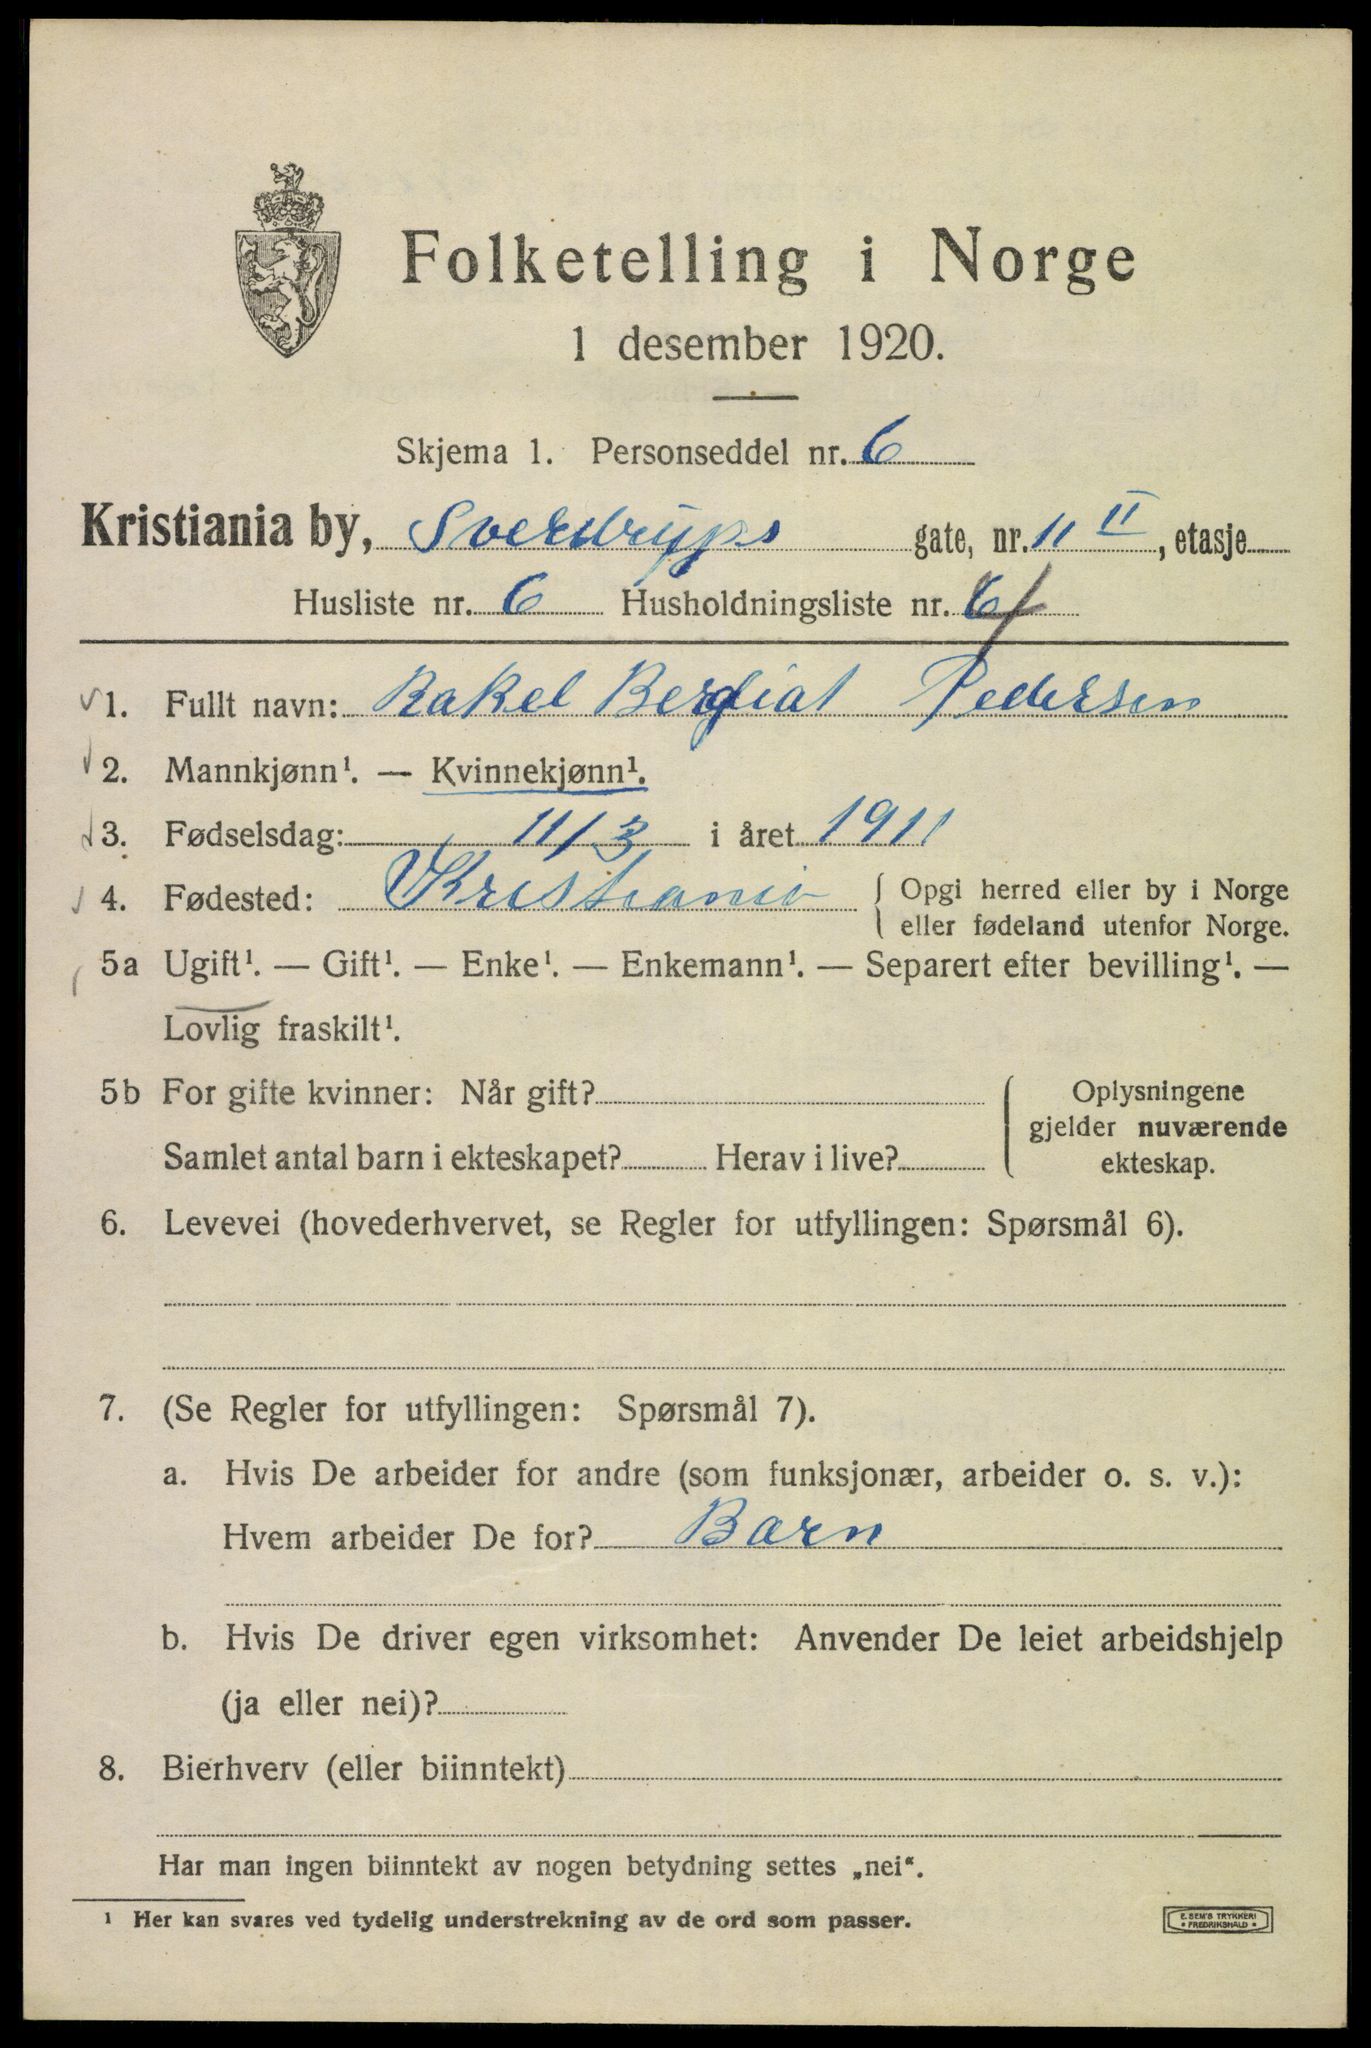 Folketelling i Norge
1 desember 1920.
Skjema 1. Personseddel nr. 6
Kristiania by, Sverdrups gate, nr. 11 II, etasje
Husliste nr. 6 Husholdningsliste nr. 6
1. Fullt navn: Rakel Pedersen
2. Mannkjønn¹. — Kvinnekjønn¹.
3. Fødselsdag: 11/3 i året 1911
4. Fødested: Kristiania { Opgi herred eller by i Norge
eller fødeland utenfor Norge.
5a Ugift¹. — Gift¹. — Enke¹. — Enkemann¹. — Separert efter bevilling¹. —
Lovlig fraskilt¹.
5b For gifte kvinner: Når gift?
Samlet antal barn i ekteskapet? Herav i live?
Oplysningene
gjelder nuværende
ekteskap.
6. Levevei (hovederhvervet, se Regler for utfyllingen: Spørsmål 6).
7. (Se Regler for utfyllingen: Spørsmål 7).
a. Hvis De arbeider for andre (som funksjonær, arbeider o. s. v.):
Hvem arbeider De for? Barn
b. Hvis De driver egen virksomhet: Anvender De leiet arbeidshjelp
(ja eller nei)?
8. Bierhverv (eller biinntekt)
Har man ingen biinntekt av nogen betydning settes „nei“.
¹ Her kan svares ved tydelig understrekning av de ord som passer.
E. SEM'S TRYKKERI
• FREDRIKSHALD •